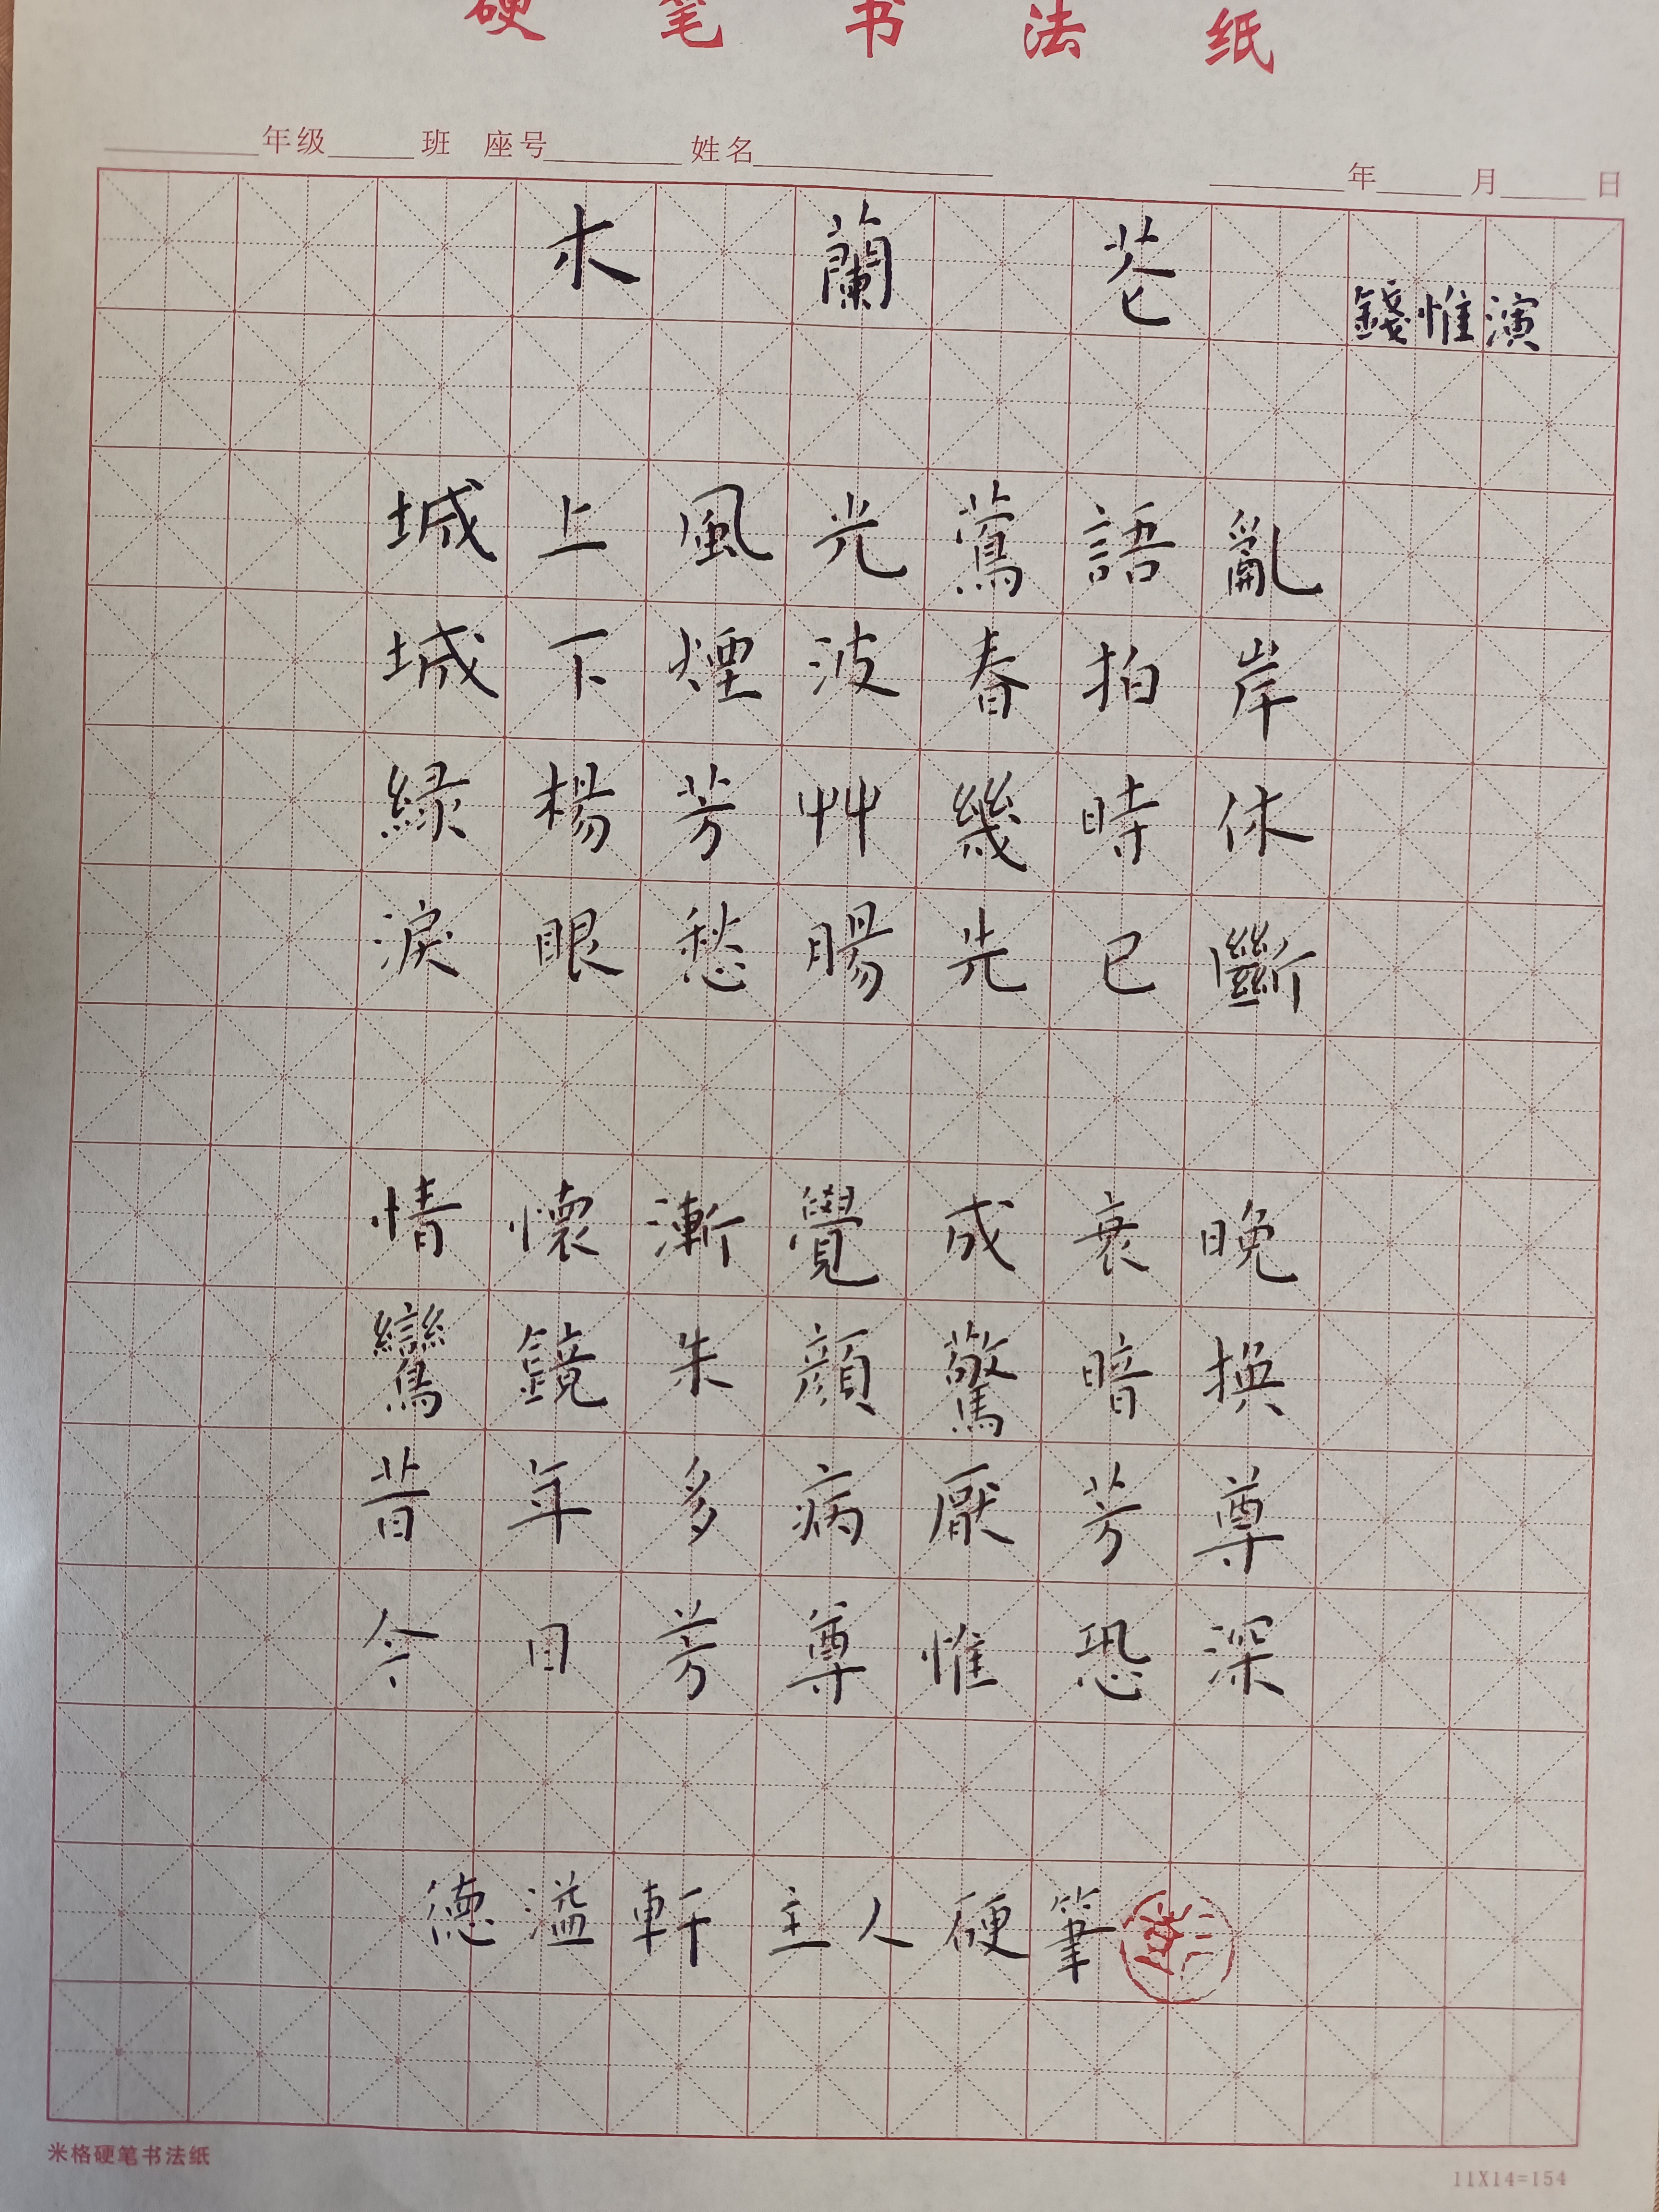 硬笔书法纸
年级 班 座号 姓名 年 月 日
木蘭花
錢惟演
城上風光鶯語亂
城下煙波春拍岸
緑楊芳艸幾時休
淚眼愁腸先已斷
情懷漸覺成衰晚
鸞鏡朱顔驚暗換
昔年多病厭芳尊
今日芳尊惟恐淺
德溢軒主人硬筆
米格硬笔书法纸
11X14=154